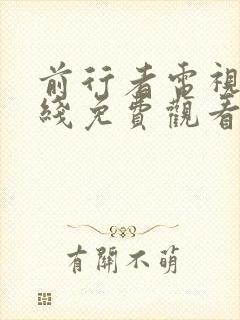 前行者電視
綫免費觀看
有關不萌